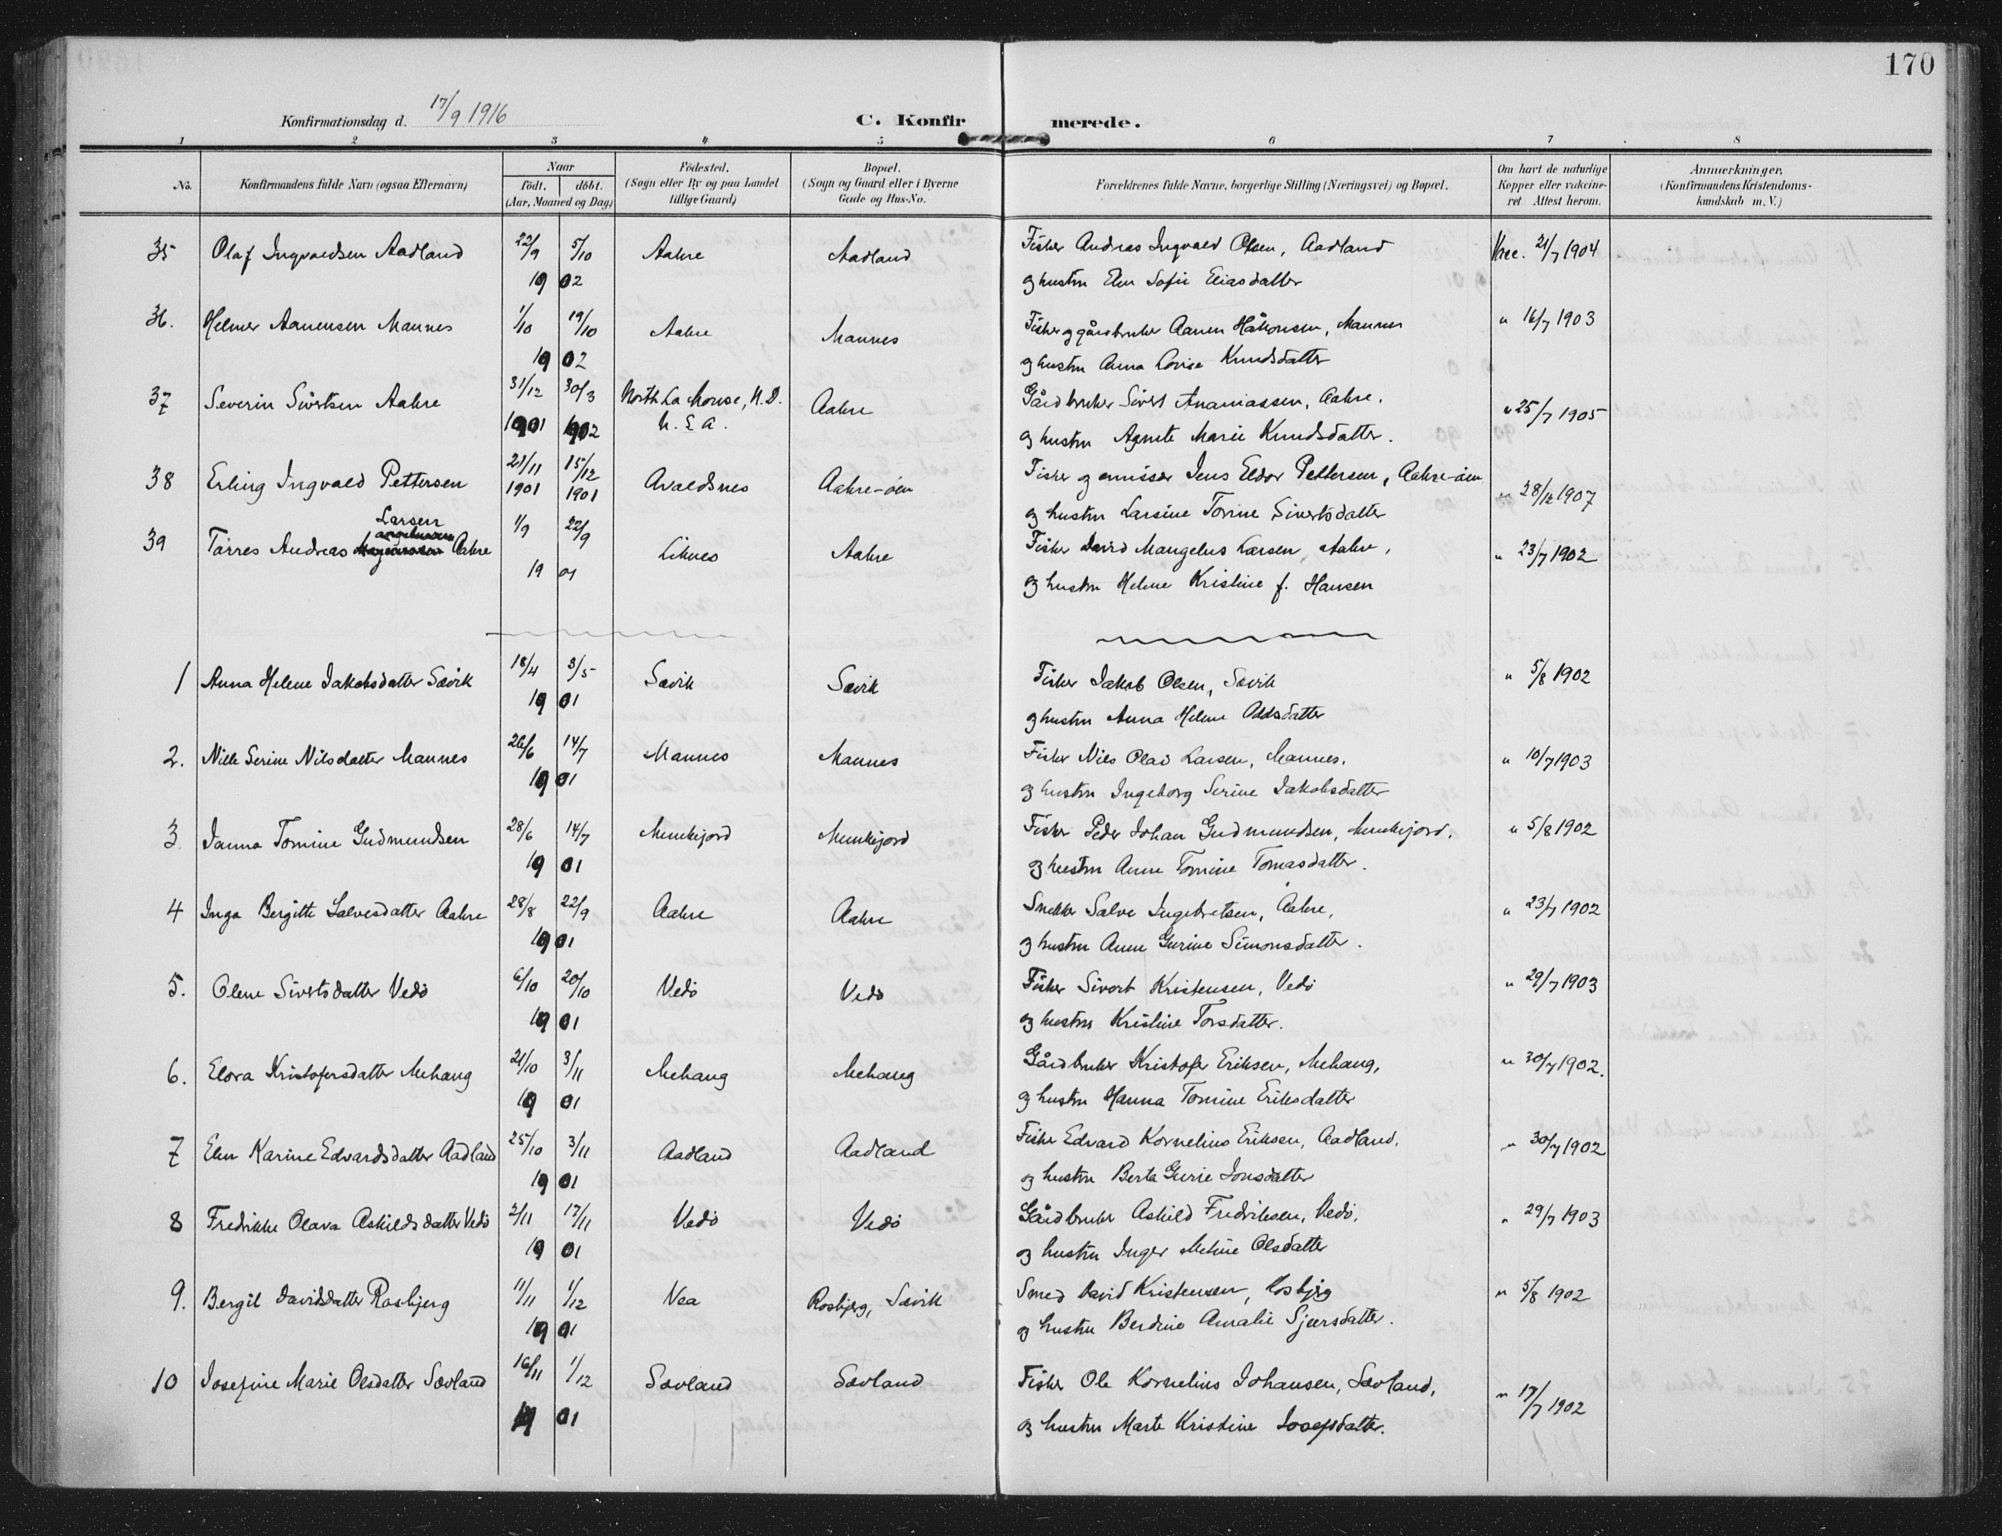 170
Konfirmationsdag d. 17/9 1916 C. Konfirmerede.
1 2 3 4 5 6 7 8
No. Konfirmandens fulde Navn (ogsaa Efternavn) Naar født. døbt. (Aar, Maaned og Dag) Fødested. (Sogn eller By og paa Landet tillige Gaard) Bopæl. (Sogn og Gaard eller i Byerne Gade og Hus-No. Forældrenes fulde Navne, borgerlige Stilling (Næringsvei) og Bopæl. Om havt de naturlige Kopper eller vakcineret. Attest herom. Anmærkninger. (Konfirmandens Kristendomskundskab m. V.)
35 Olaf Ingvaldsen Aadland 22/9 5/10 Aakre Aadland Fisker Andreas Ingvald Olsen, Aadland Vacc. 21/7 1904
1902 og hustru Elen Sofie Eliasdatter
36. Helmer Aanensen Mannes 1/10 19/10 Aakre Mannes Fisker og gårdbruker Aanen Håkonsen, Mannes " 16/7 1903
1902 og hustru Anna Lovise Knudsdatter
37 Severin Sivertsen Aakre 31/12 30/3 North La Mouse, N.D. Aakre Gårdbruker Sivert Ananiassen, Aakre. " 25/7 1905
1901 1902 U.S.A. og hustru Agnete Marie Knudsdatter.
38 Erling Ingvald Pettersen 21/11 15/12 Avaldsnes Aakre-øen Fisker og emissær Jens Eldor Pettersen, Aakre-øen " 28/12 1907
1901 1901 og hustru Larsine Torine Sivertsdatter
Larsen
39 Tørres Andreas Aakre 1/9 22/9 Liknes Aakre Fisker David Mangelus Larsen, Aakre, " 23/7 1902
1901 og hustru Helene Kristine f. Hansen
1 Anna Helene Jakobsdatter Sævik 18/4 3/5 Sævik Sævik Fisker Jakob Olsen, Sævik " 5/8 1902
1901 og hustru Anna Helene Oddsdatter
2. Nille Serine Nilsdatter Mannes 26/6 14/7 Mannes Mannes Fisker Nils Olai Larsen, Mannes, " 10/7 1903
1901 og hustru Ingeborg Serine Jakobsdatter
3. Janna Tomine Gudmundsen 28/6 14/7 Munkejord Munkejord Fisker Peder Johan Gudmundsen, Munkejord. " 5/8 1902
1901 og hustru Anne Tomine Tomasdatter.
4 Inga Bergitte Salvesdatter Aakre 28/8 22/9 Aakre Aakre Snekker Salve Ingebretsen, Aakre, " 23/7 1902
1901 og hustru Anne Gurine Simonsdatter.
5. Olene Sivertsdatter Vedø 6/10 20/10 Vedø Vedø Fisker Sivert Kristensen, Vedø " 29/7 1903
1901 og hustru Kristine Torsdatter.
6. Elora Kristofersdatter Mehaug 21/10 3/11 Mehaug Mehaug Gårdbruker Kristofer Eriksen, Mehaug, " 30/7 1902.
1901 og hustru Hanna Tomine Eriksdatter
7 Elen Karine Edvardsdatter Aadland 25/10 3/11 Aadland Aadland Fisker Edvard Kornelius Eriksen, Aadland. " 30/7 1902
1901 og hustru Berta Gurie Jonsdatter
8 Fredrikke Olava Askildsdatter Vedø 2/11 17/11 Vedø Vedø Gårdbruker Askild Fredriksen, Vedø, " 29/7 1903
1901 og hustru Inger Meline Olsdatter
9. Bergit Davidsdatter Rosbjerg 11/11 1/12 Vea Rosbjerg, Sævik Smed David Kristensen, Rosbjerg " 5/8 1902
1901 og hustru Berdine Amalie Sjursdatter.
10 Josefine Marie Olsdatter Sævland 16/11 1/12 Sævland Sævland Fisker Ole Kornelius Johansen, Sævland, " 17/7 1902
1901 og hustru Marte Kristine Josefsdatter.